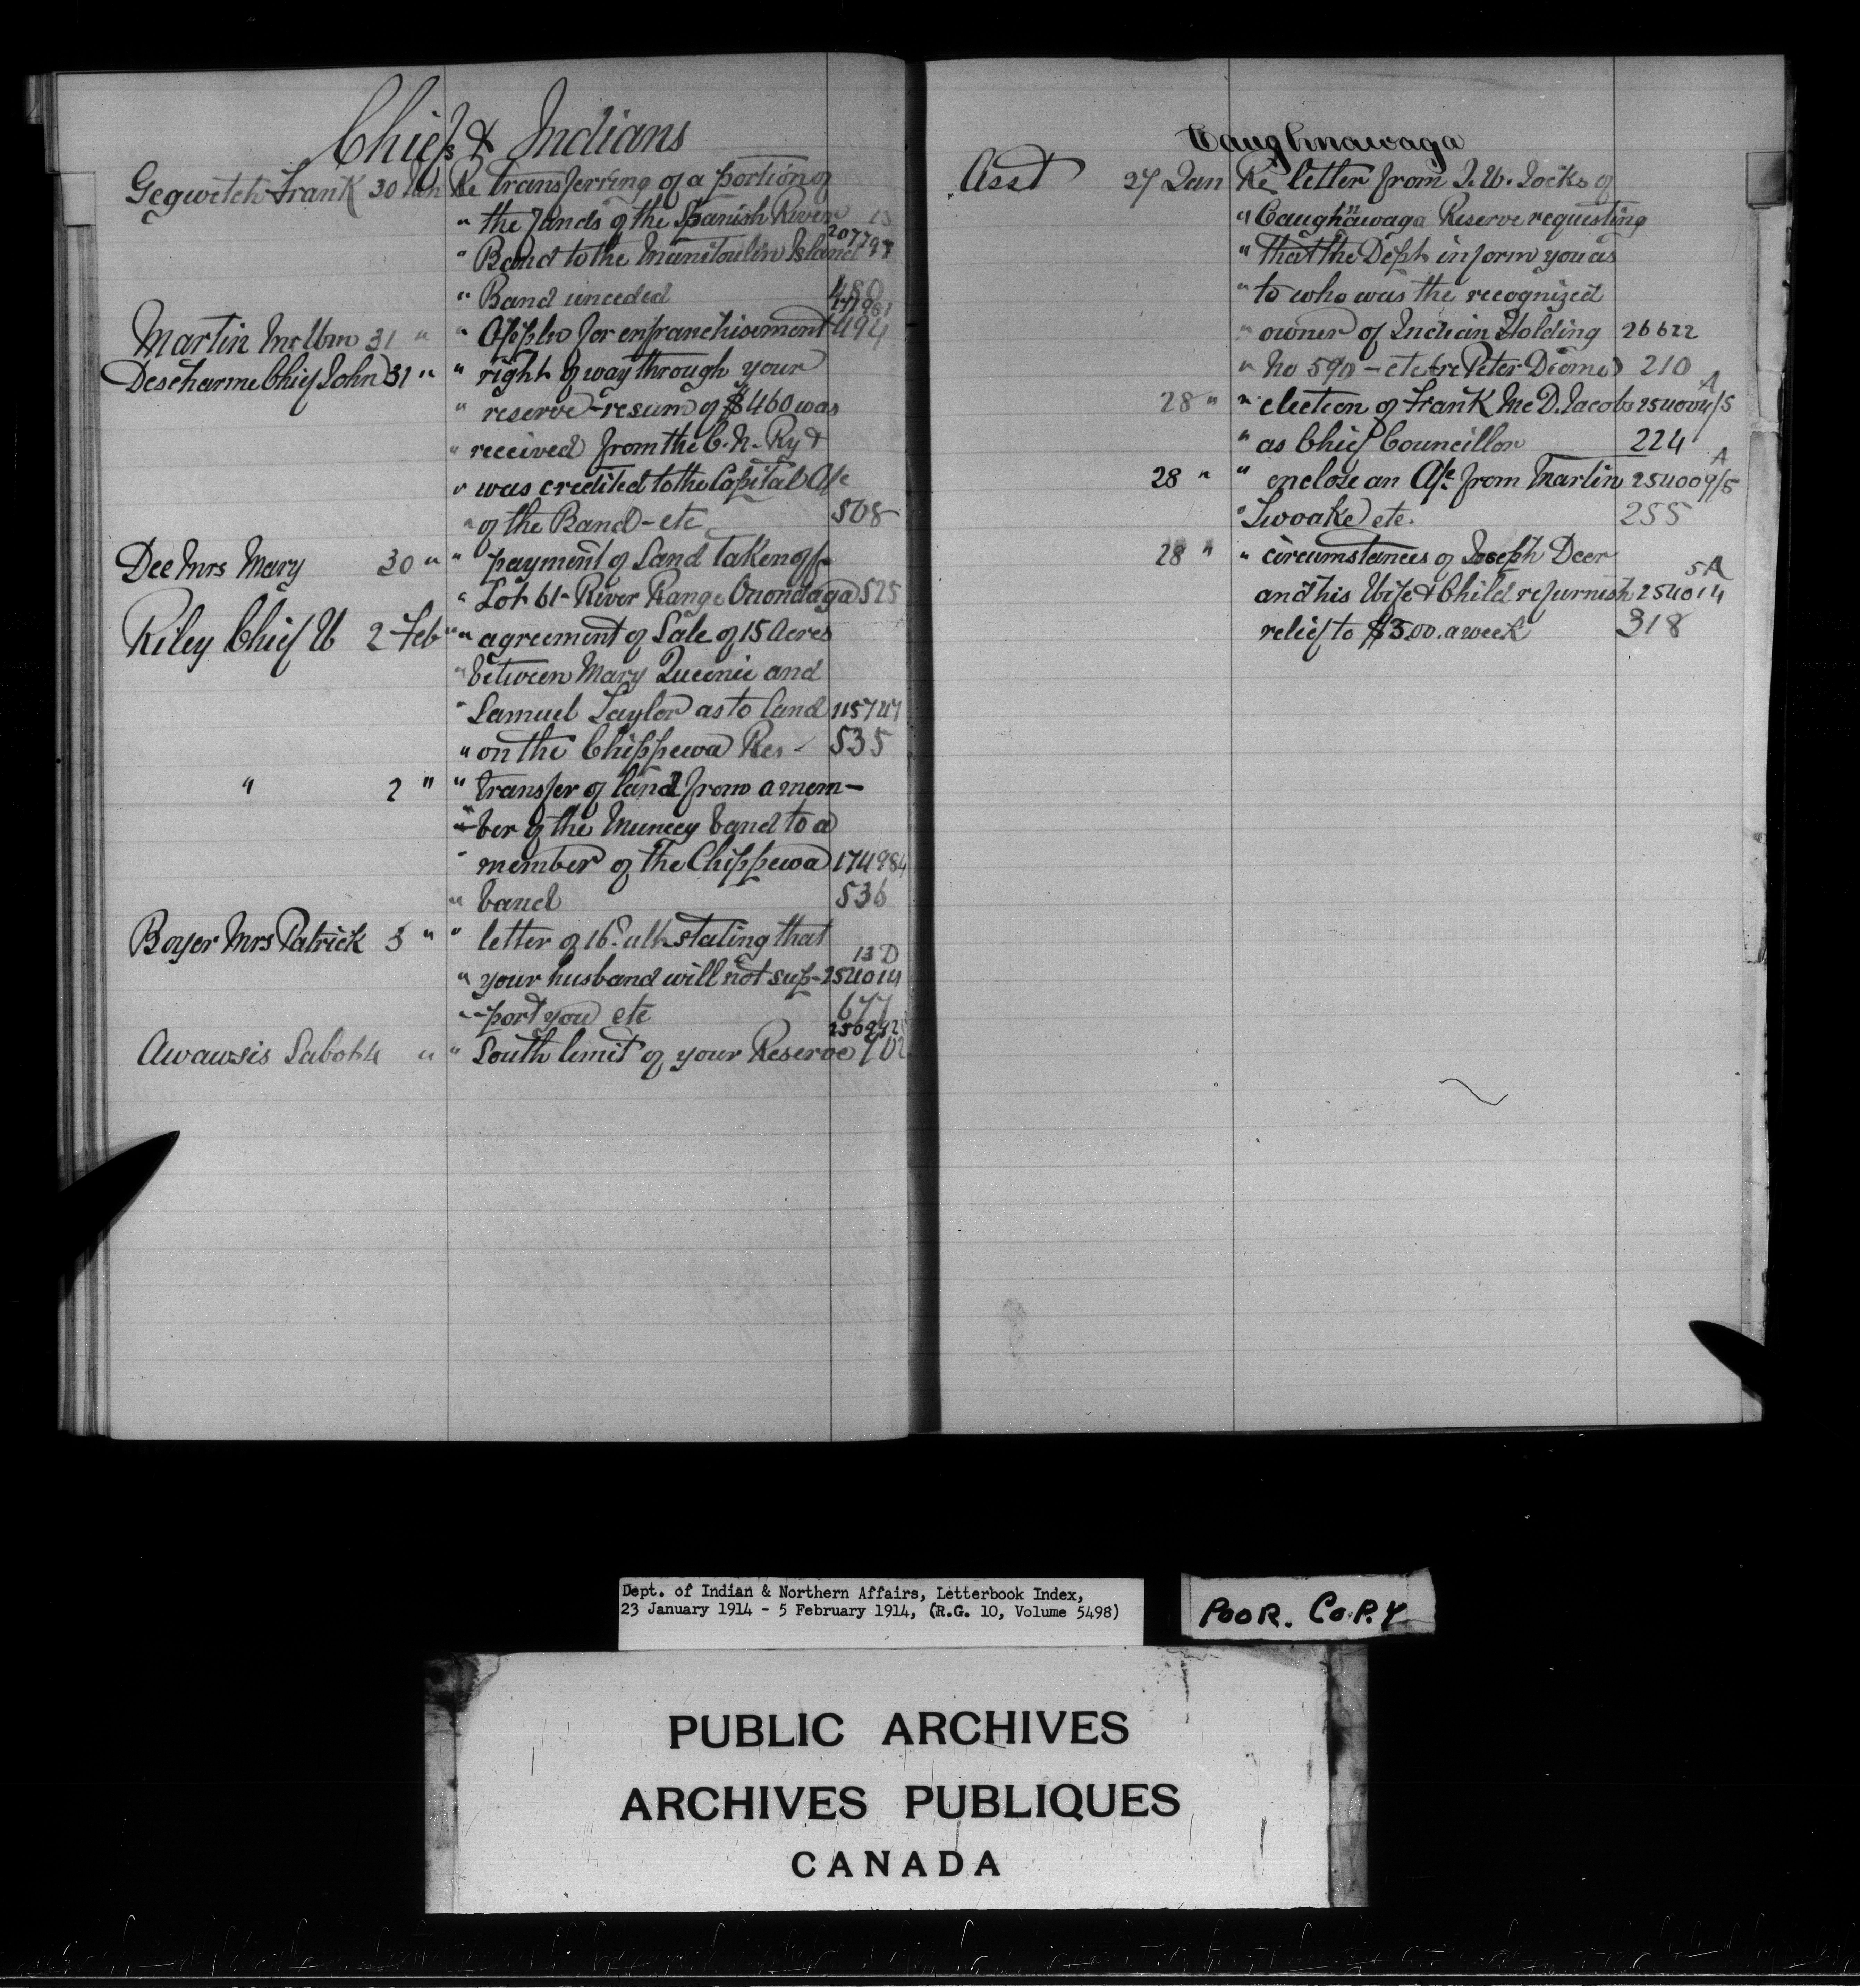 Chiefs & Indians
Gegwetch Frank 30 Jan Re transferring of a portion of
" the lands of the Spanish River 13
" Band to the Manitoulin Island 207797
" Band unceded 480
Martin Mr Wm 31 " " Appln for enfranchisement 494
Descharme Chief John 31 " " right of way through your
" reserve - re sum of $460 was
" received from the C. N. Ry &
" was credited to the Capital A/c
" of the Band - etc 508
Dee Mrs Mary 30 " " payment of Land taken off
" Lot 61 - River Range Onondaga 525
Riley Chief W 2 Feb " " agreement of Sale of 15 Acres
" between Mary Queenie and
" Samuel Taylor as to land 115747
" on the Chippewa Res - 535
" 2 " " transfer of land from a mem-
" ber of the Muncey band to a
" member of the Chippewa 174984
" band 536
Boyer Mrs Patrick 5 " " letter of 16 ult. stating that
13 D
" your husband will not sup- 254014
" -port you etc 677
Awawsis 4 " " South limit of your Reserve 702
Caughnawaga
Asst 27 Jan Re letter from J. W. Jocks of
" Caughnawaga Reserve requesting
" that the Dept. inform you as
" to who was the recognized
" owner of Indian Holding 26622
" No 590 - etc (re Peter Diome) 210
28 " " election of Frank Mc D. Jacobs 254004/5 A
" as Chief Councillor 224
28 " " enclose an A/c. from Martin 254009/5 A
" Twoake etc. 255
28 " " circumstances of Joseph Deer
5A
and his Wife & Child re furnish 254014
relief to $3.00. a week 318
Dept. of Indian & Northern Affairs, Letterbook Index,
23 January 1914 - 5 February 1914, (R.G. 10, Volume 5498)
POOR. COPY
PUBLIC ARCHIVES
ARCHIVES PUBLIQUES
CANADA